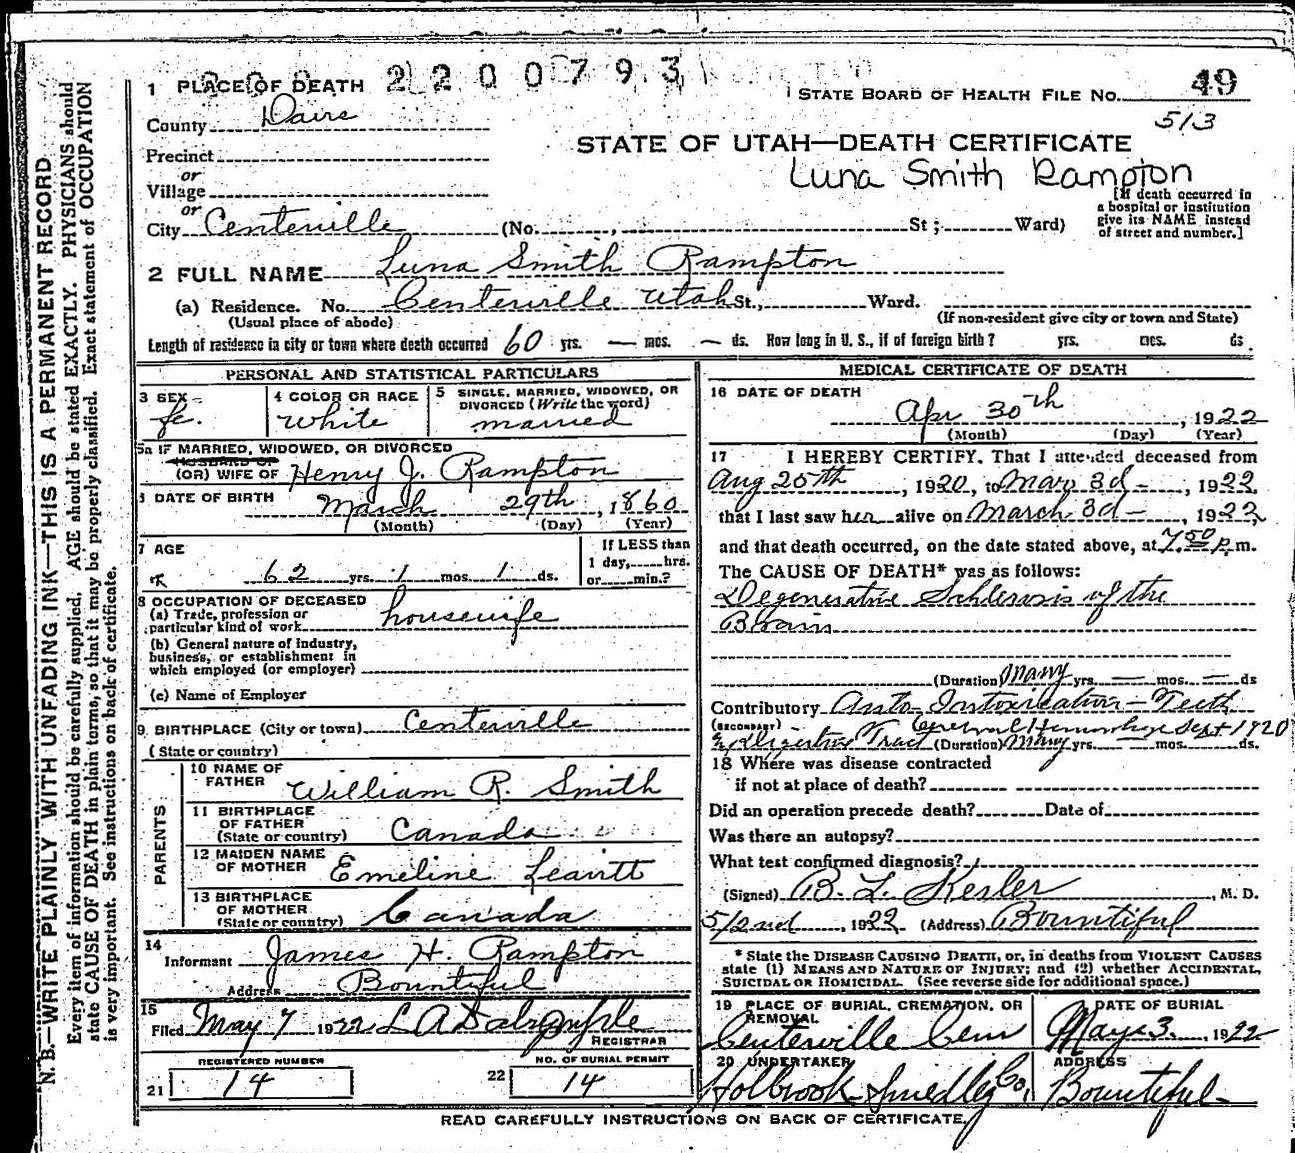 2200793
1 PLACE OF DEATH
STATE BOARD OF HEALTH FILE NO. 49
513
County Davis
STATE OF UTAH—DEATH CERTIFICATE
Precinct
or
Luna Smith Rampton
Village
or
City Centerville (No. , St; Ward)
[If death occurred in
a hospital or institution
give its NAME instead
of street and number.]
2 FULL NAME Luna Smith Rampton
(a) Residence. No. Centerville Utah St., Ward.
(Usual place of abode)
(If non-resident give city or town and State)
Length of residence in city or town where death occurred 60 yrs. — mos. — ds. How long in U. S., if of foreign birth? yrs. mos. ds.
PERSONAL AND STATISTICAL PARTICULARS
3 SEX
fe.
4 COLOR OR RACE
White
5 SINGLE, MARRIED, WIDOWED, OR
DIVORCED (Write the word)
married
5a IF MARRIED, WIDOWED, OR DIVORCED
HUSBAND OF
(OR) WIFE OF Henry J. Rampton
6 DATE OF BIRTH
March 29th, 1860
(Month) (Day) (Year)
7 AGE
62 yrs. 1 mos. 1 ds.
If LESS than
1 day, hrs.
or min.?
8 OCCUPATION OF DECEASED
(a) Trade, profession or
particular kind of work housewife
(b) General nature of industry,
business, or establishment in
which employed (or employer)
(c) Name of Employer
9 BIRTHPLACE (City or town) Centerville
(State or country)
PARENTS
10 NAME OF
FATHER William R. Smith
11 BIRTHPLACE
OF FATHER
(State or country) Canada
12 MAIDEN NAME
OF MOTHER Emeline Leavitt
13 BIRTHPLACE
OF MOTHER
(State or country) Canada
14
Informant James H. Rampton
Address Bountiful
15
Filed May 7 1922 L A Dalrymple
REGISTRAR
REGISTERED NUMBER
21 14
NO. OF BURIAL PERMIT
22 14
MEDICAL CERTIFICATE OF DEATH
16 DATE OF DEATH
Apr 30th, 1922
(Month) (Day) (Year)
17 I HEREBY CERTIFY, That I attended deceased from
Aug 25th, 1920, to Mar 3d —, 1922,
that I last saw her alive on March 3d —, 1922,
and that death occurred, on the date stated above, at 7:50 P. m.
The CAUSE OF DEATH* was as follows:
Degenerative Schlerosis of the
Brain
(Duration) Many yrs. — mos. — ds
Contributory Auto Intoxication — Teeth
(SECONDARY) Cerebral Hemorrhage Sept 1920
& Digestive Tract (Duration) Many yrs. — mos. ds.
18 Where was disease contracted
if not at place of death?
Did an operation precede death? Date of
Was there an autopsy?
What test confirmed diagnosis?
(Signed) B. L. Kesler, M. D.
5/2nd, 1922 (Address) Bountiful
* State the DISEASE CAUSING DEATH, or, in deaths from VIOLENT CAUSES
state (1) MEANS AND NATURE OF INJURY; and (2) whether ACCIDENTAL,
SUICIDAL OR HOMICIDAL. (See reverse side for additional space.)
19 PLACE OF BURIAL, CREMATION, OR
REMOVAL
Centerville Cem
DATE OF BURIAL
May 3 1922
20 UNDERTAKER
Holbrook Smedley Co.
ADDRESS
Bountiful
READ CAREFULLY INSTRUCTIONS ON BACK OF CERTIFICATE.
N. B.—WRITE PLAINLY WITH UNFADING INK—THIS IS A PERMANENT RECORD
Every item of information should be carefully supplied. AGE should be stated EXACTLY. PHYSICIANS should
state CAUSE OF DEATH in plain terms, so that it may be properly classified. Exact statement of OCCUPATION
is very important. See instructions on back of certificate.